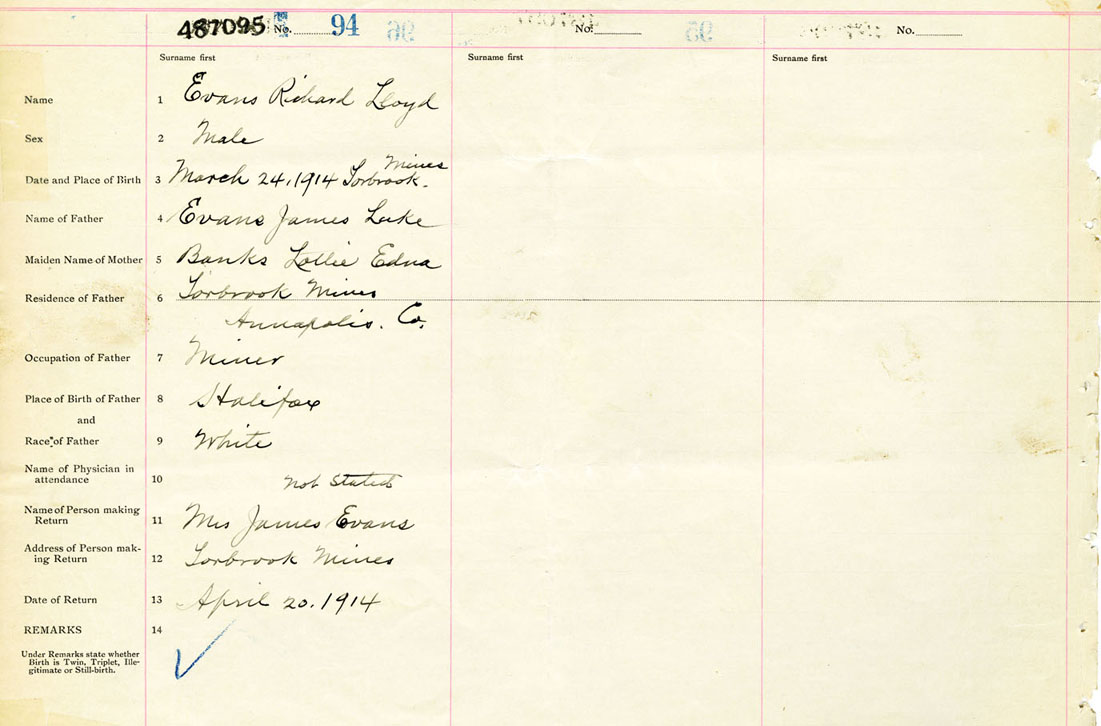 487095 No. 94 No. No.
Surname first Surname first Surname first
Name 1 Evans Richard Lloyd
Sex 2 Male
Mines
Date and Place of Birth 3 March 24, 1914 Torbrook.
Name of Father 4 Evans James Luke
Maiden Name of Mother 5 Banks Lottie Edna
Residence of Father 6 Torbrook Mines
Annapolis. Co.
Occupation of Father 7 Miner
Place of Birth of Father 8 Halifax
and
Race of Father 9 White
Name of Physician in
attendance 10 not Stated
Name of Person making
Return 11 Mrs James Evans
Address of Person mak-
ing Return 12 Torbrook Mines
Date of Return 13 April 20. 1914
REMARKS 14
Under Remarks state whether
Birth is Twin, Triplet, Ille-
gitimate or Still-birth.